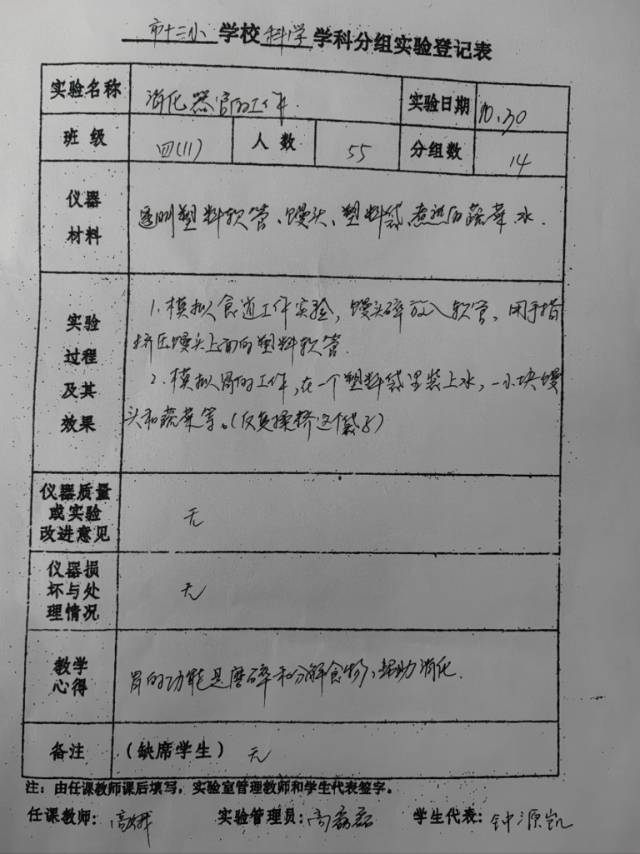 市十二小学校科学学科分组实验登记表
实验名称 消化器官的工作 实验日期 10.30
班级 四(11) 人数 55 分组数 14
仪器材料 透明塑料软管、馒头、塑料袋、煮过的蔬菜、水.
实验过程及其效果
1.模拟食道工作实验,馒头碎放入软管,用手指
挤压馒头上面的塑料软管.
2.模拟胃的工作,在一个塑料袋里装上水,一小块馒
头和蔬菜等。(反复揉挤这个袋子)
仪器质量或实验改进意见 无
仪器损坏与处理情况 无
教学心得 胃的功能是磨碎和分解食物、帮助消化.
备注 (缺席学生) 无
注:由任课教师课后填写,实验室管理教师和学生代表签字。
任课教师: 高 实验管理员: 学生代表:钟源凯